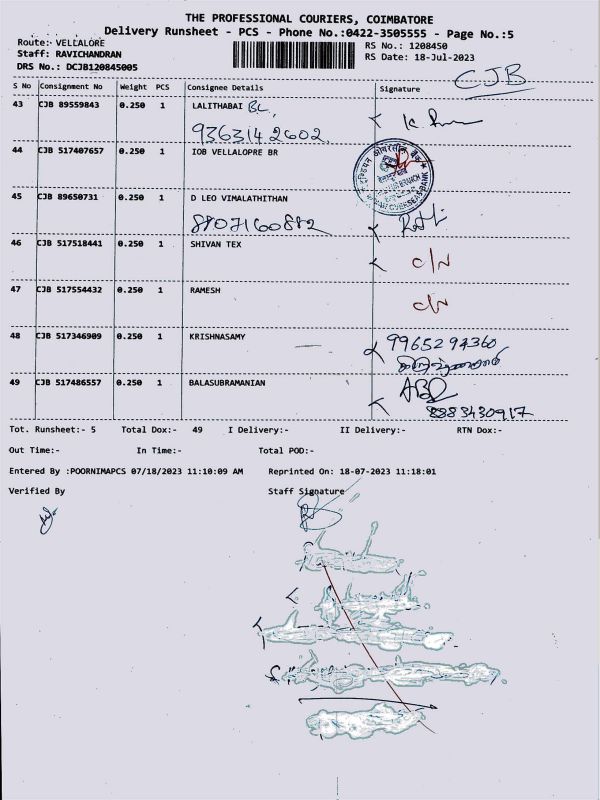 THE PROFESSIONAL COURIERS, COIMBATORE
Delivery Runsheet - PCS - Phone No.:0422-3505555 - Page No.:5
Route:- VELLALORE
RS No.: 1208450
Staff: RAVICHANDRAN
RS Date: 18-Jul-2023
DRS No.: DCJB120845005
CJB
S No Consignment No Weight PCS Consignee Details Signature
43 CJB 89559843 0.250 1 LALITHABAI BC,
9363142602
44 CJB 517407657 0.250 1 IOB VELLALOPRE BR
45 CJB 89650731 0.250 1 D LEO VIMALATHITHAN
8807160882
46 CJB 517518441 0.250 1 SHIVAN TEX C/N
47 CJB 517554432 0.250 1 RAMESH C/N
48 CJB 517346909 0.250 1 KRISHNASAMY 9965294360
49 CJB 517486557 0.250 1 BALASUBRAMANIAN
8883430917
Tot. Runsheet:- 5 Total Dox:- 49 I Delivery:- II Delivery:- RTN Dox:-
Out Time:- In Time:- Total POD:-
Entered By :POORNIMAPCS 07/18/2023 11:10:09 AM Reprinted On: 18-07-2023 11:18:01
Verified By Staff Signature